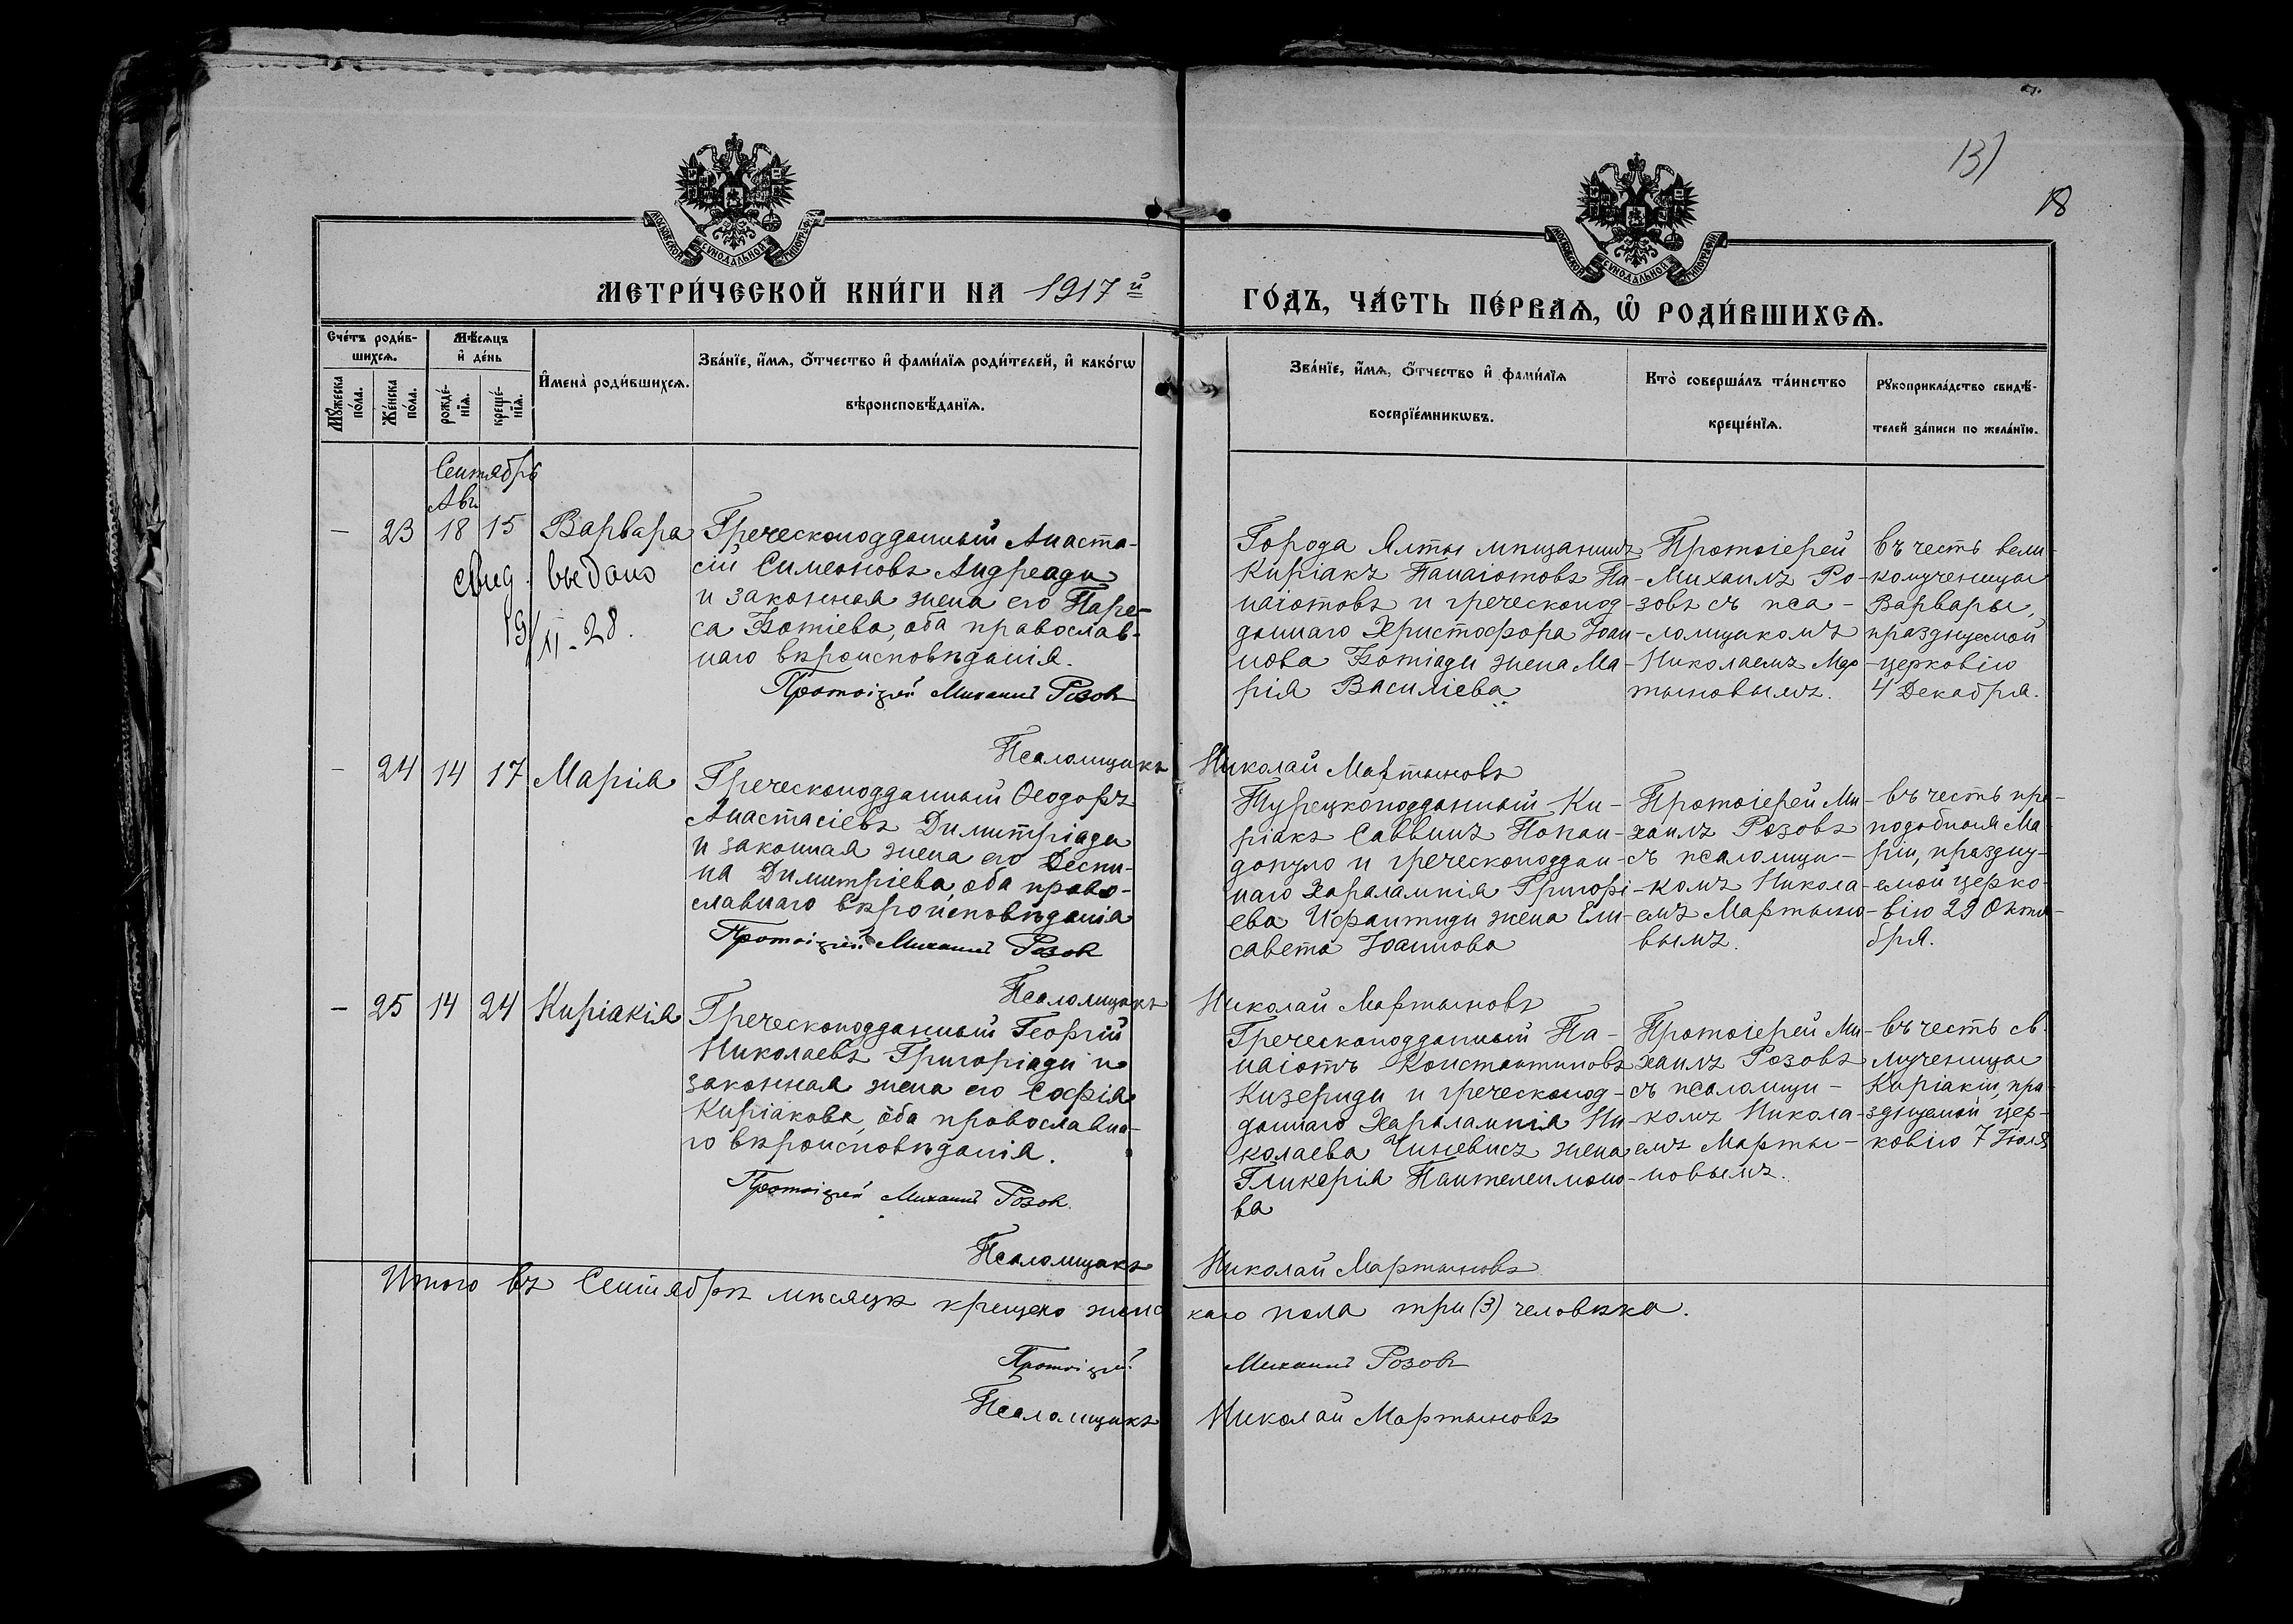 13)
18
МОСКОВСКОЙ СУНОДАЛЬНОЙ ТИПОГРАФІИ
МОСКОВСКОЙ СУНОДАЛЬНОЙ ТИПОГРАФІИ
МЕТРИ́ЧЕСКОЙ КНИ́ГИ НА 1917й
ГО́ДЪ, ЧА́СТЬ ПЕ́РВАѦ, Ѡ҆ РОДИ́ВШИХСѦ.
Сче́тъ роди́в-
шихсѧ.
Мꙋ́жеска по́ла.
Же́нска по́ла.
Мѣ́сѧцъ
и҆ де́нь
рожде́-
нїѧ.
креще́-
нїѧ.
И҆мена̀ роди́вшихсѧ.
Зва́нїе, и҆́мѧ, ѻ҆́тчество и҆ фами́лїѧ роди́телей, и҆ како́гѡ
вѣроисповѣ́данїѧ.
Зва́нїе, и҆́мѧ, ѻ҆́тчество и҆ фами́лїѧ
воспрїе́мникѡвъ.
Кто̀ соверша́лъ та́инство
креще́нїѧ.
Рꙋкоприкла́дство свидѣ́-
телей за́писи по жела́нїю.
Сентябрь
Авг.
— 23 18 15 Варвара
свид. выдано
19/II-28.
Греческоподданный Анаста-
сій Симеоновъ Андреади
и законная жена его Паре-
са Фотіева, оба православ-
наго вѣроисповѣданія.
Протоіерей Михаилъ Розовъ
Города Ялты мѣщанинъ
Киріакъ Панаіотовъ Па-
наіотовъ и греческопод-
даннаго Христофора Іоан-
нова Фотіади жена Ма-
рія Василіева
Протоіерей
Михаилъ Ро-
зовъ съ пса-
ломщикомъ
Николаемъ Мар
тыновымъ.
въ честь вели-
комученицы
Варвары,
празднуемой
церковію
4 Декабря.
Псаломщикъ Николай Мартыновъ
— 24 14 17 Марія
Греческоподданный Ѳеодоръ
Анастасіевъ Димитріади
и законная жена его Деспи-
на Димитріева, оба право-
славнаго вѣроисповѣданія
Протоіерей Михаилъ Розовъ
Турецкоподданный Ки-
ріакъ Саввинъ Попан-
допуло и греческоподдан-
наго Харалампія Григорі-
ева Ифантиди жена Ели-
савета Іоаннова
Протоіерей Ми-
хаилъ Розовъ
съ псаломщи-
комъ Никола-
емъ Мартыно-
вымъ.
въ честь пре-
подобныя Ма
ріи, праздну-
емой церко-
вію 29 Октя-
бря.
Псаломщикъ Николай Мартыновъ
— 25 14 24 Киріакія
Греческоподданный Георгій
Николаевъ Григоріади и
законная жена его Софія
Киріакова, оба православна-
го вѣроисповѣданія.
Протоіерей Михаилъ Розовъ.
Греческоподданный Па-
наіотъ Константиновъ
Кизериди и греческопод-
даннаго Харалампія Ни-
колаева Чиневисъ жена
Гликерія Пантелеимоно-
ва
Протоіерей Ми-
хаилъ Розовъ
съ псаломщи-
комъ Никола-
емъ Марты-
новымъ.
въ честь св.
мученицы
Киріакіи, пра-
зднуемой цер-
ковію 7 Іюля
Псаломщикъ Николай Мартыновъ
Итого въ Сентябрѣ мѣсяцѣ крещено женскаго пола три (3) человѣка.
Протоіерей Михаилъ Розовъ
Псаломщикъ Николай Мартыновъ